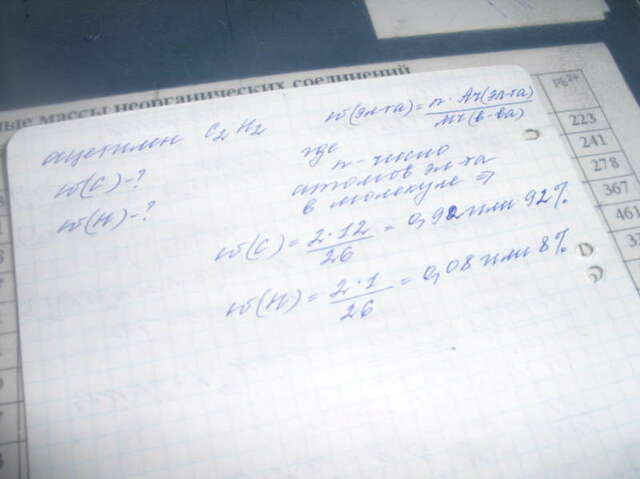 ные массы неорганических соединений
Pb²⁺
223
241
278
367
461
ацетилен C₂H₂
w(C)-?
w(H)-?
w(эл-та) = n · Ar(эл-та) / Mr(в-ва)
где
n - число
атомов эл-та
в молекуле ⇒
w(C) = 2·12 / 26 = 0,92 или 92%
w(H) = 2·1 / 26 = 0,08 или 8%